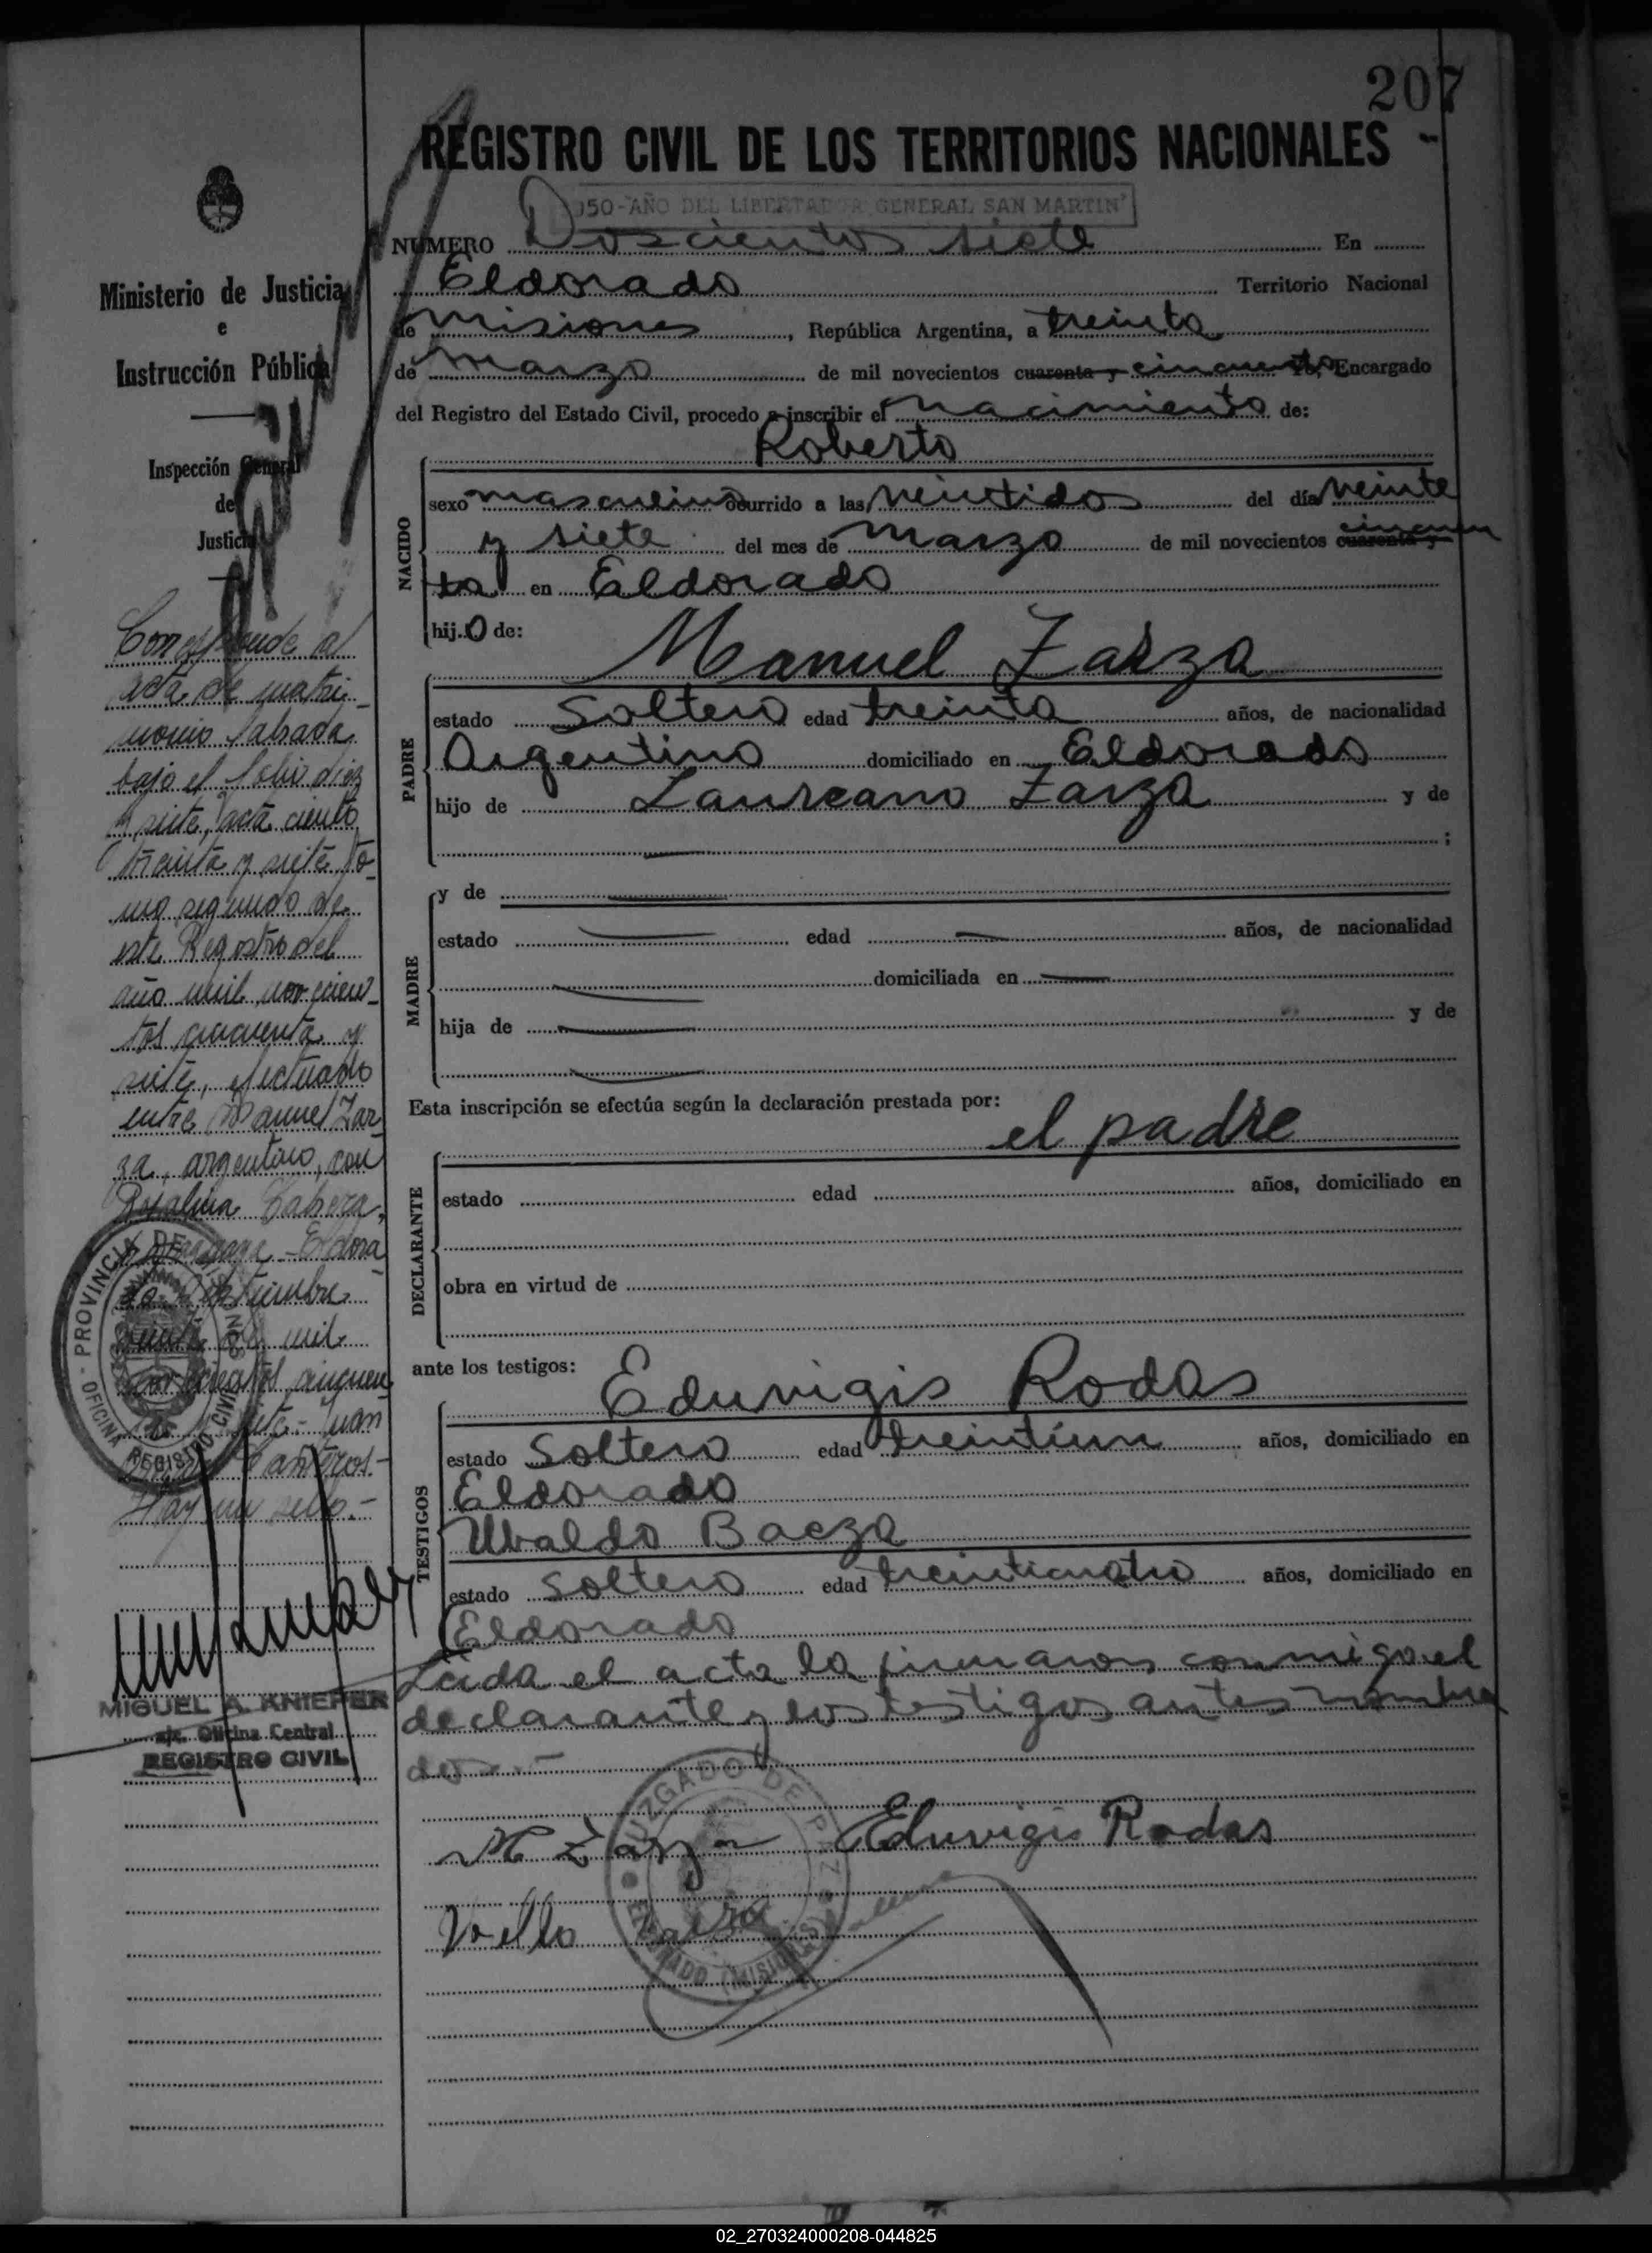 207
REGISTRO CIVIL DE LOS TERRITORIOS NACIONALES
1950-AÑO DEL LIBERTADOR GENERAL SAN MARTIN
NUMERO Doscientos siete En
Eldorado Territorio Nacional
de Misiones, República Argentina, a treinta
de Marzo de mil novecientos cuarenta y cincuenta Yo, Encargado
del Registro del Estado Civil, procedo a inscribir el Nacimiento de:
Roberto
NACIDO
sexo masculino ocurrido a las veintidos del día veinte
y siete del mes de Marzo de mil novecientos cuarenta y cincuen
ta en Eldorado
hijo de:
Manuel Zarza
PADRE
estado Soltero edad treinta años, de nacionalidad
Argentino domiciliado en Eldorado
hijo de Laureano Zarza y de
;
MADRE
y de
estado edad años, de nacionalidad
domiciliada en
hija de y de
Esta inscripción se efectúa según la declaración prestada por:
el padre
DECLARANTE
estado edad años, domiciliado en
obra en virtud de
ante los testigos:
Eduvigis Rodas
TESTIGOS
estado Soltero edad treintiun años, domiciliado en
Eldorado
Ubaldo Baeza
estado soltero edad treinticuatro años, domiciliado en
Eldorado
Leida el acta la firmaron conmigo el
declarante y los testigos antes nombra
dos.-
M Zarza Eduvigis Rodas
JUZGADO DE PAZ
ELDORADO (MISIONES)
Ministerio de Justicia
e
Instrucción Pública
Inspección General
de
Justicia
Corresponde al
acta de matri-
monio labrada
bajo el folio diez
y siete, acta ciento
treinta y siete, to-
mo segundo de
este Registro del
año mil novecien-
tos cincuenta y
siete, efectuado
entre Manuel Zar-
za, argentino, con
Rosalina Cabrera,
Eldora-
do Septiembre
mil
novecientos cincuen
siete.- Juan
Hay un sello.-
PROVINCIA DE MISIONES
OFICINA REGISTRO CIVIL
MIGUEL A. KNIEPER
a/c. Oficina Central
REGISTRO CIVIL
02_270324000208-044825